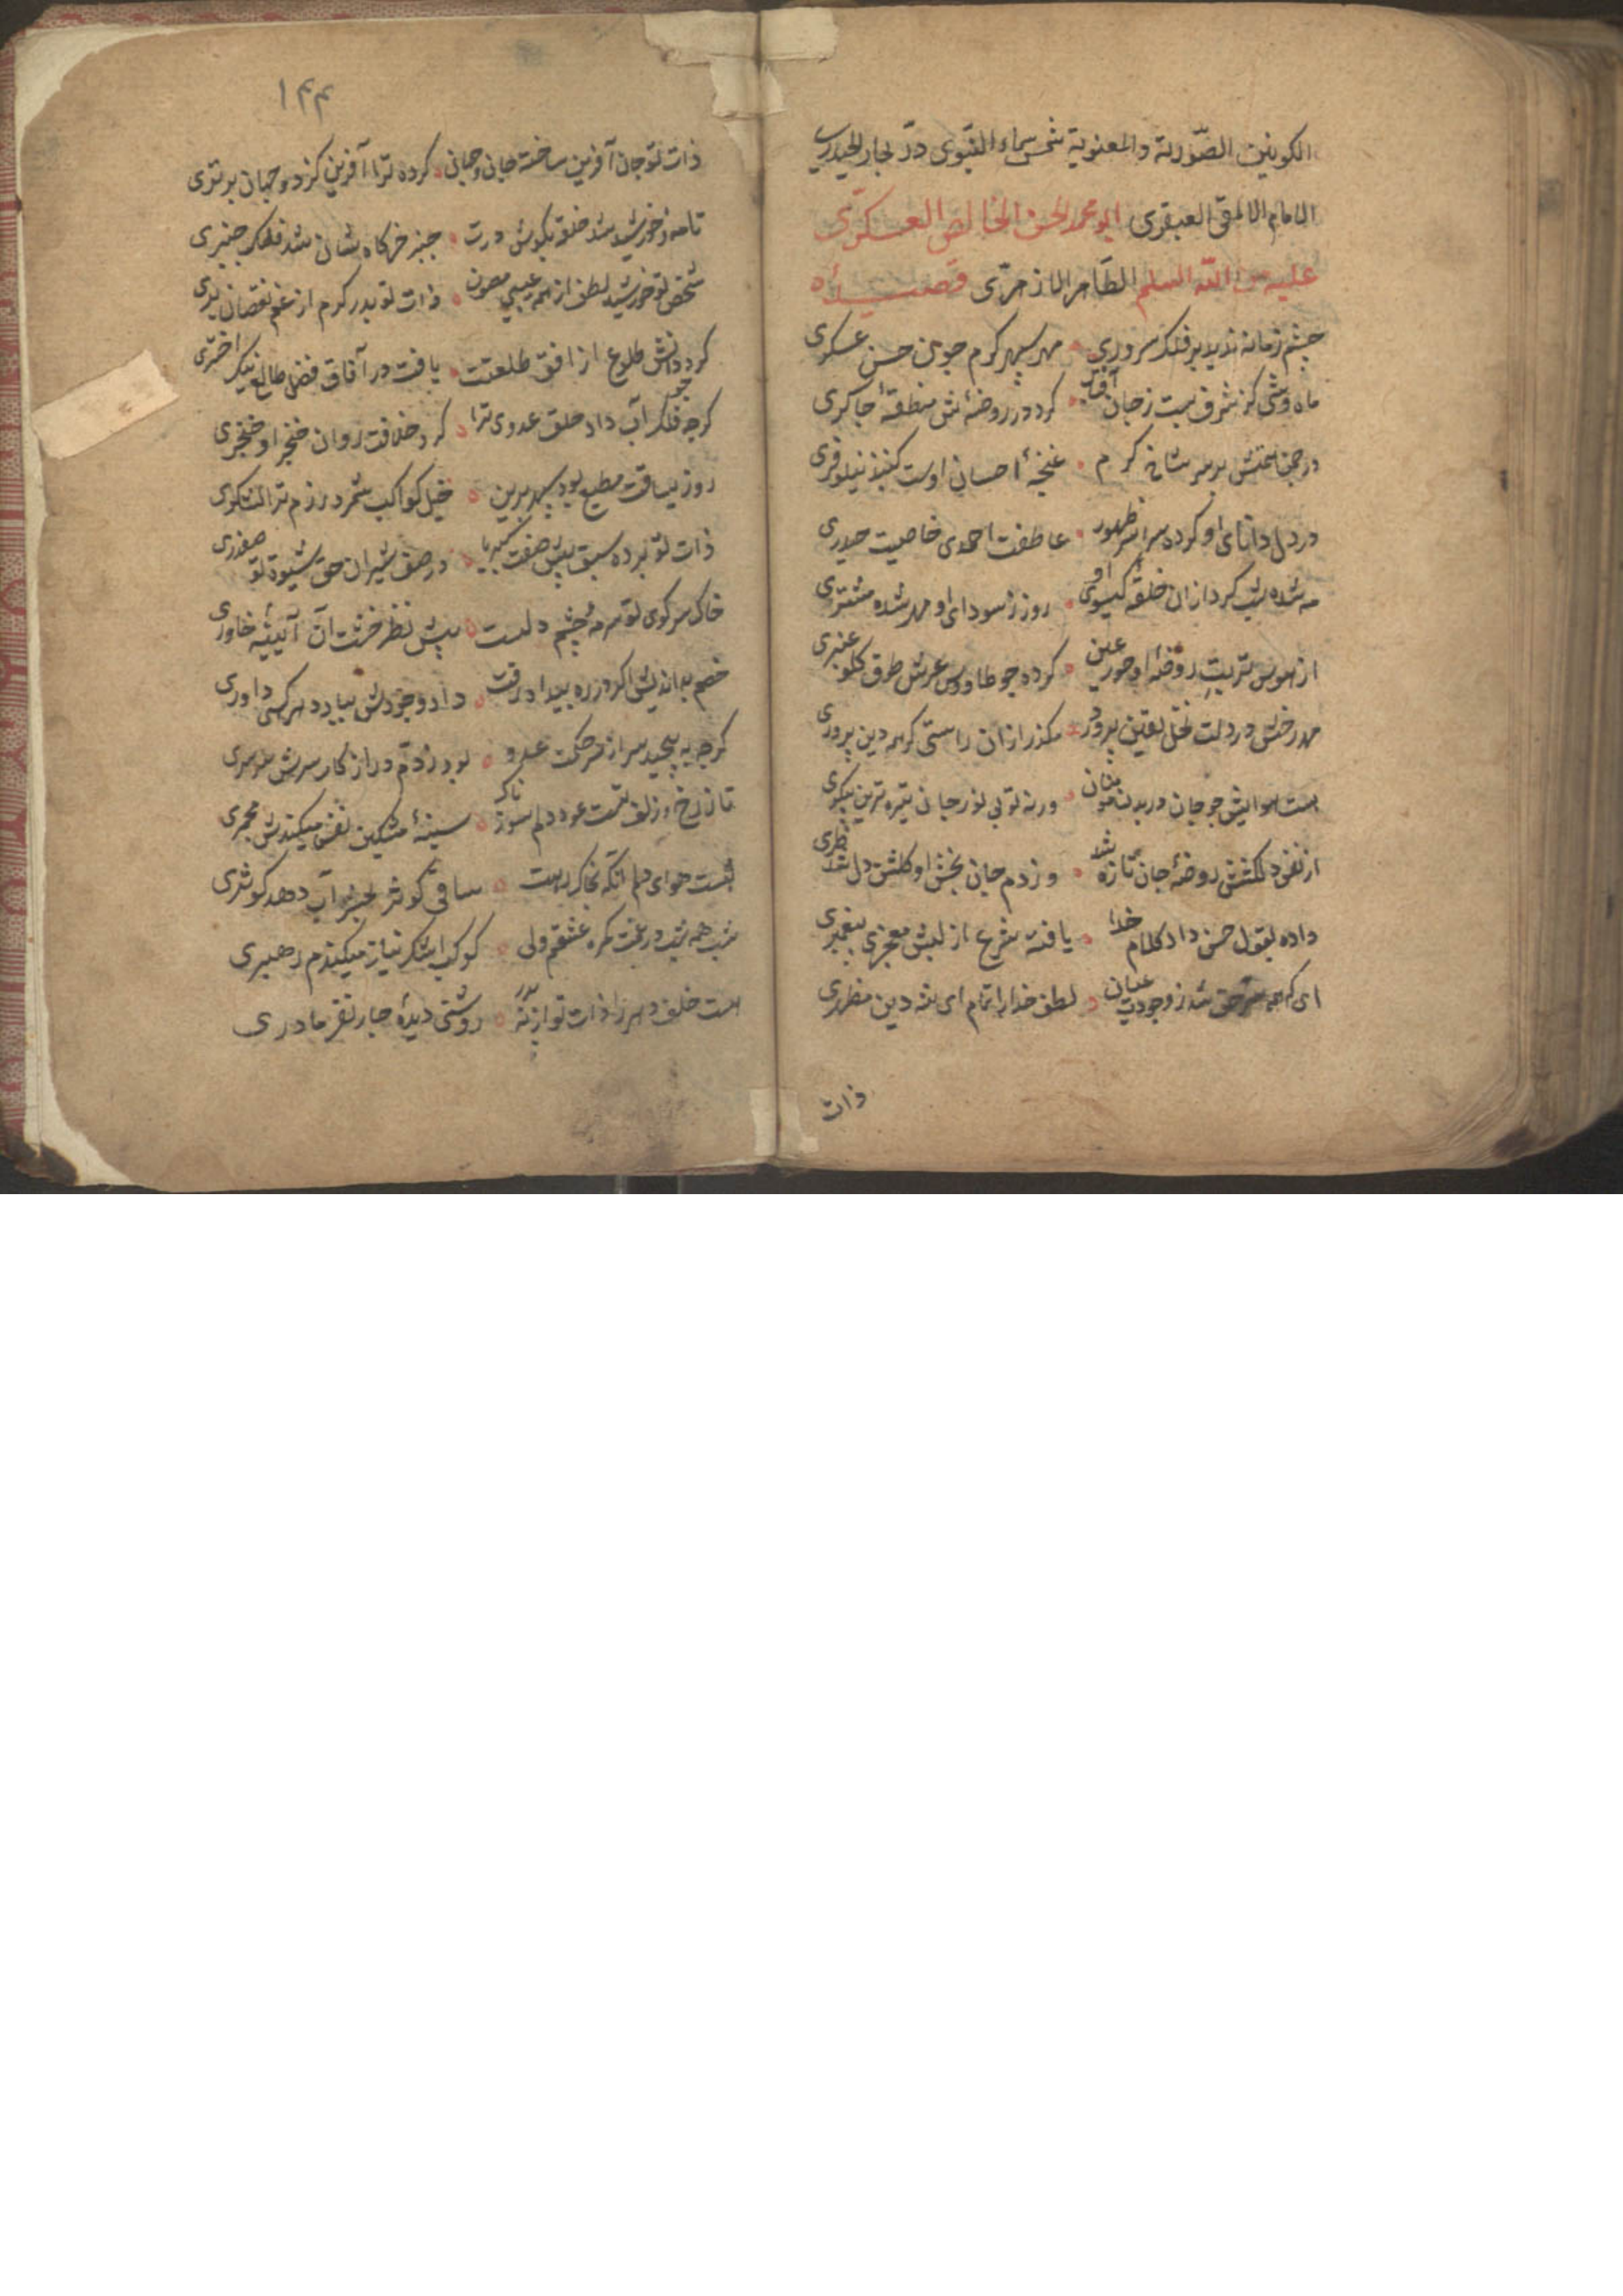 الکونین الصّوریة والمعنویة شمس سماء النبوی درّ بحار الحیدری
الامام الالمعی العبقری ابو محمد الحسن الخالص العسکری
علیه من الله السلم الطاهر الازهری قصیده
چشم زمانه ندید بر فلک سروری مهر سپهر کرم جون حسن عسکری
ماه وشی کز شرف بست ز جان کرد در روضه‌اش منطقهٔ جاکری
در جمن بر سر شاخ کرم غنجهٔ احسان اوست کنبد نیلوفری
در دل دانای او کرده سراسر ظهور عاطفت احمدی خاصیت حیدری
مه شده شب کرد ازان حلقه کیسوی او روز ز سودای او مهر شده مشتری
از هوس تربت روضهٔ او حور عین کرده جو طاووس عرش طوق کلو عنبری
مهر رخش در دلت نخل یقین پرورد مکذر ازان راستی کر همه دین پروری
هست هوایش جو جان در بدن ورنه تو بی نور جان تیره ترین پیکری
از نفس دلکشش روضهٔ جان تازه شد وز دم جان بخش او کلشن دل شد طری
داده بقول حسن داد کلام خدا یافته شرع از لبش معجز پیغمبری
ای که همه سرّ حق شد ز وجودت عیان لطف خدا را تمام ای شه دین مظهری
ذات
۱۴۴
ذات تو جان آفرین ساخته جانی و جهانی کرده ترا آفرین کز دو جهان برتری
تا مه و خورشید شد حلقه بکوش درت جنبر خرکاه شان شد فلک جنبری
شخص تو خورشید لطف از همه عیبی مصون ذات تو بدر کرم از غم نقصان بری
کرد دانش طلوع از افق طلعتت یافت در آفاق فضل طالع نیک اختری
کرجه فلک آب داد حلق عدوی ترا کرد خلافت روان خنجر او خنجری
روز مطیع بود سپهر برین خیل کواکب شمرد رزم ترا لشکری
ذات تو برده سبق پیش صف کبریا در صف شیران حق شیوهٔ تو صفدری
خاک سر کوی تو سرمهٔ چشم دلست پیش نظر خشت آن آیینه خاوری
خصم بداندیش اکر در ره بیدا درفت داد وجودش بباد دهر کسی داوری
کرجه به پیچید سر از حکمت عدو بود ز در از کار سرش سرسری
تا ز رخ و زلف تست عود دلم سوزناک سینهٔ مشکین نفس میکندش مجمری
هست هوای دلم آنکه بخاک رهت ساقی کوثر بحشر آب دهد کوثری
شب همه شب در رهت کمره عشقم ولی کوکب اشک نیاز میکندم رهبری
هست خلف دهر را ذات تو از نه پدر روشنی دیدهٔ جار نفر مادری